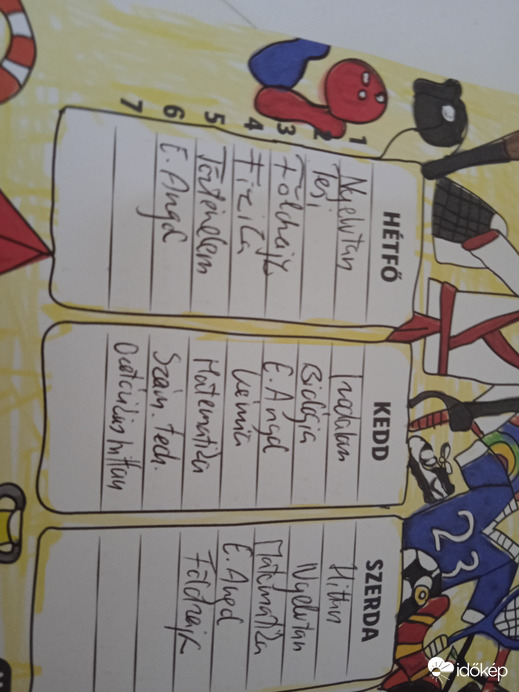 1
2
3
4
5
6
7
HÉTFŐ
Nyelvtan
Tesi
Földrajz
Fizika
Történelem
E. Angol
KEDD
Irodalom
Biológia
E. Angol
kémia
Matematika
Szám. tech.
SZERDA
Hittan
Nyelvtan
Matematika
E. Angol
Földrajz
23
időkép